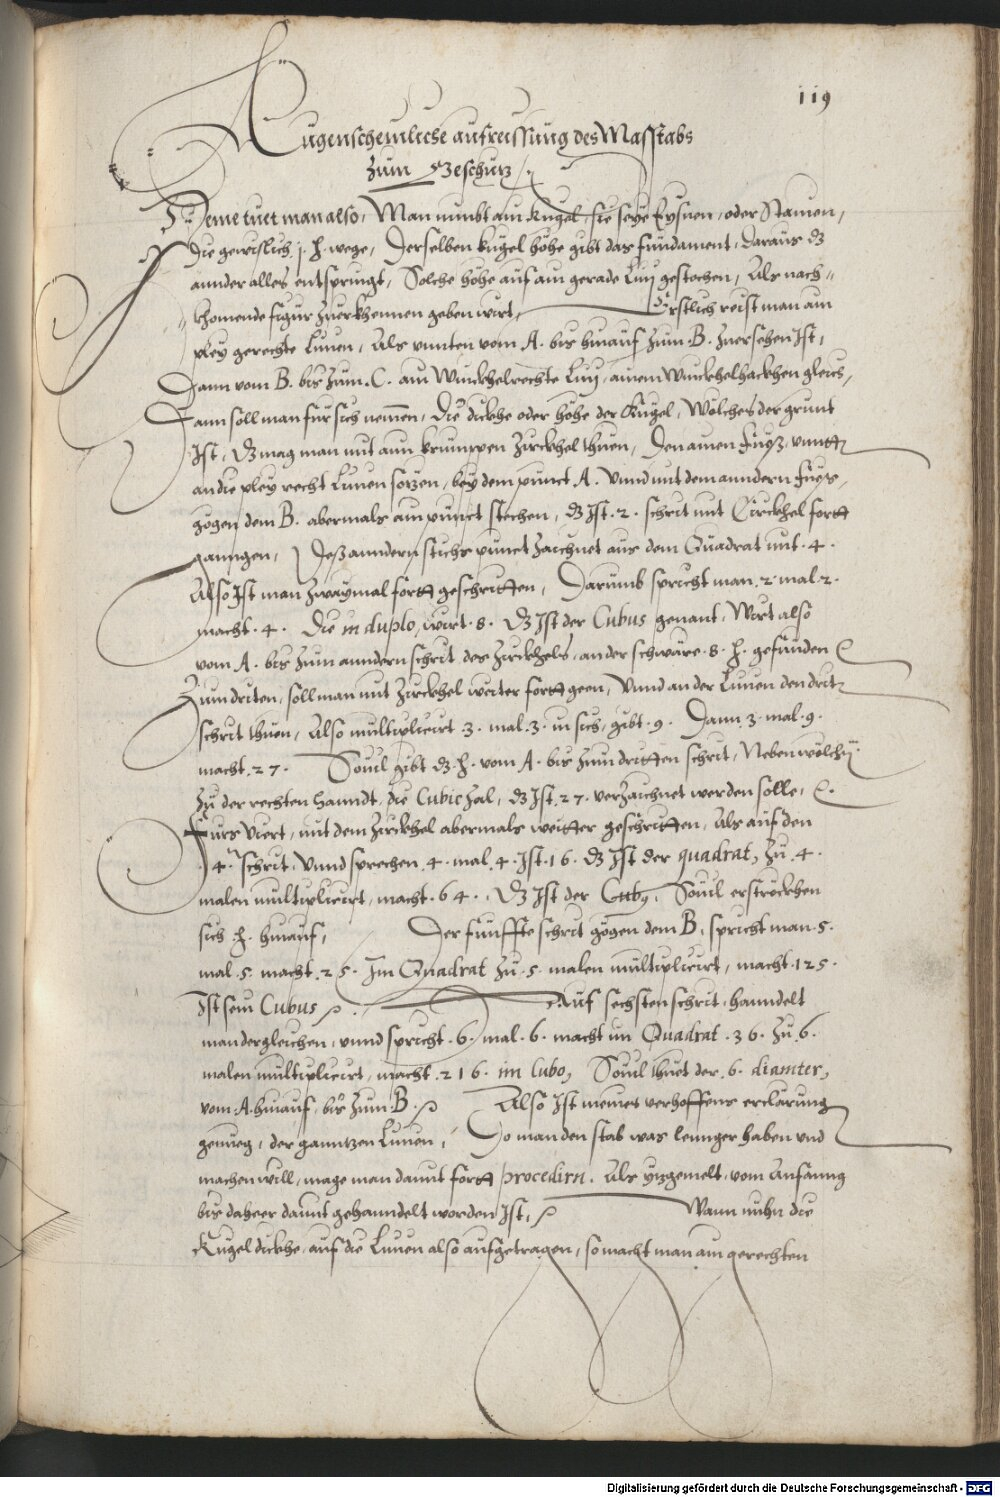 119
Augenscheinliche aufreissung des Masstabs
zum Geschütz
Deme tuet man also, Man nimbt ain Kugel, sie seye Eysnen, oder Stainen,
die gewislich j. ℔. wege, Derselben kugel höhe gibt das fundament, daraus dz
annder alles entspringt, Solche höhe auf ain gerade Lini gestochen, Als nach-
khomende figur zuerkhennen geben wirt, Erstlich reist man ain
pley gerechte Linien, Als vnnten vom A. bis hinauf zum B. zuersehen Ist,
Dann vom B. bis zum C. ain Winckhelrechte Lini, ainem Winckhelhackhen gleich,
Dann soll man für sich nemen, Die dickhe oder höhe der Kugel, Wölches der grunt
Ist, Dz mag man mit ainn krumppen Zirckhel thuen, Den ainen fueß, vnntten
an die pley recht Linien sötzen, bey dem punct A. Vnnd mit dem anndern fueß,
gögen dem B. abermals ain punct stechen, dz Ist .2. schrit mit Circkhel fortt
ganngen, Deß anndern stichs punct zaichnet aus dem Quadrat mit .4.
Also Ist man zwaymal fortt geschritten, Darumb spricht man .2. mal .2.
macht .4. Die in duplo, wirt .8. Dz Ist der Cubus genant, Wirt also
vom A. bis zum anndern schrit des Zirckhels, an der schwäre .8. ℔. gefunden
Zum driten, soll man mit Zirckhel weiter fortt geen, Vnnd an der Linien den drit
schrit thuen, Also multiplicirt .3. mal .3. in sich, gibt .9. Dann .3. mal .9.
macht .27. Souil gibt dz ℔. vom A. bis zum dritten schrit, Neben wölchen
zu der rechten hanndt, die Cubic zal, dz Ist .27. verzaichnet werden solle,
Furs Viert, mit dem Zirckhel abermals weitter geschritten, Als auf den
.4. schrit, Vnnd sprechen .4. mal .4. Ist .16. Dz Ist der quadrat, zu .4.
malen multiplicirt, macht .64. Dz Ist der Cubus, Souil erströckhen
sich ℔. hinauf, Der fünffte schrit gögen dem B, spricht man .5.
mal .5. macht .25. Im Quadrat zu .5. malen multiplicirt, macht .125.
Ist sein Cubus Auf sechsten schrit, hanndelt
man dergleichen, vnnd spricht .6. mal .6. macht im Quadrat .36. zu .6.
malen multiplicirt, macht .216. im Cubo, Souil thuet der .6. diamter,
vom A. hinauf, bis zum B. Also Ist meines verhoffens erclärung
genueg, der ganntzen Linien, So man den stab was lennger haben vnd
machen will, mage man damit fortt procedirn. Als yzgemelt, vom Anfanng
bis daheer damit gehanndelt worden Ist, Wann nuhn die
Kugel dickhe, auf die Linien also aufgetragen, so macht man ain gerechten
Digitalisierung gefördert durch die Deutsche Forschungsgemeinschaft - DFG